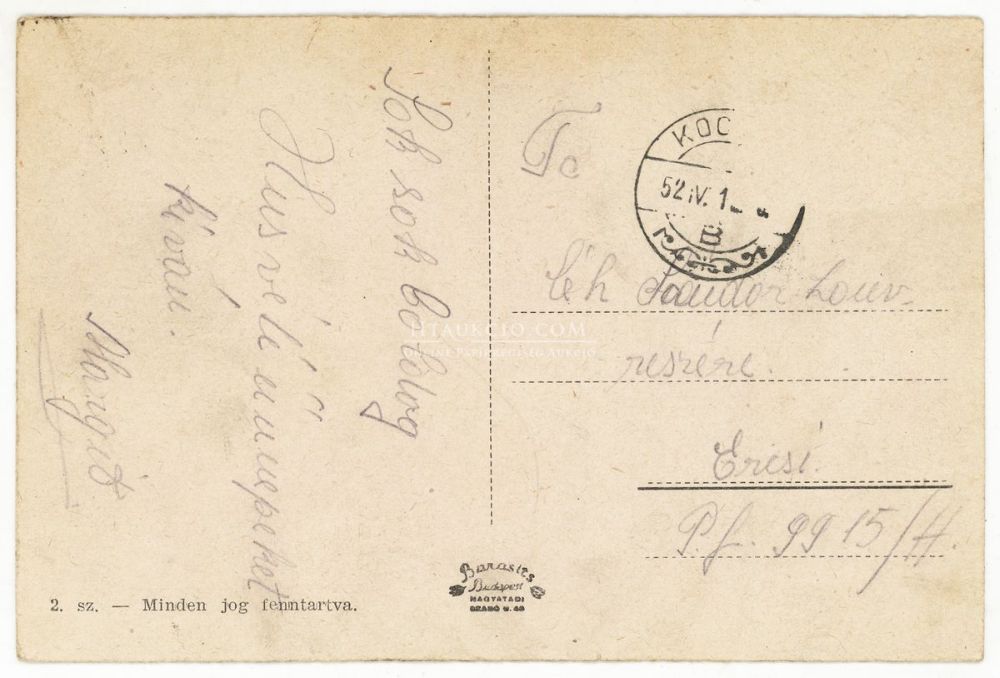 Sok sok boldog
Húsvéti ünnepeket
kíván.
Margit
KOC
52 IV. 1
B
Céh Sándor
részére.
Ercsi.
P.f. 9915/H.
HTAUKCIO.COM
ONLINE PAPÍRRÉGISÉG AUKCIÓ
2. sz. — Minden jog fenntartva.
Barasits
Budapest
NAGYATÁDI
SZABÓ U. 48